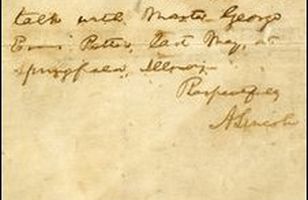 talk with Master George
Evans Patten, last May, at
Springfield, Illinois.
Respectfully
A. Lincoln